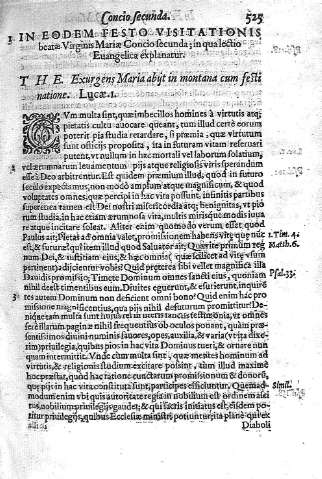 Concio secunda. 525
1 IN EODEM FESTO VISITATIONIS
beatæ Virginis Mariæ Concio secunda; in qua lectio
Euangelica explanatur.
THE. Exurgens Maria abijt in montana cum festi
natione. Lucæ. 1.
CVm multa sint, quæ imbecillos homines à virtutis atq;
pietatis cultu auocare queant, tum illud certè eorum
poterit pia studia retardare, si præmia, quæ virtutum
sunt officijs proposita, ita in futuram vitam reseruari
putent, vt nullum in hac mortali vel laborum solatium,
vel ærumnarum leuamentum pijs atque religiosis viris sperandum
2 esse à Deo arbitrentur. Est quidem præmium illud, quod in futuro
seculo expectamus, non modò amplum atque magnificum, & quod
voluptates omnes, quæ percipi in hac vita possunt, infinitis partibus
superet
rum studia, in hac etiam ærumnosa vita, multis mirisque modis iuua
re atque incitare soleat. Aliter enim quomodo verum esset quod
Paulus ait; Pietas ad omnia valet, promissionem habens vitæ quæ nũc 1. Tim. 4.
est, & futuræ? qui item illud quod Saluator ait; Quærite primùm reg Matth. 6.
num Dei, & iustitiam eius, & hæc omnia
adijcientur vobis? Quid præterea sibi vellet magnifica illa
Dauidis promissio; Timete Dominum omnes sancti eius, quoniam Psal. 33.
nihil deest timentibus eum. Diuites eguerunt, & esurierunt, inquirē
3 tes autem Dominum non deficient omni bono? Quid enim hac pro
missione magnificentius, qua pijs nihil defuturum promittitur? De-
nique
ferè sacrarum paginæ nihil frequentius ob oculos ponant, quàm præ-
sentissimos diuini numinis fauores, opes, auxilia, & varia
rim) priuilegia, quibus pios in hac vita Dominus tueri, & ornare nun
quam intermittit. Vnde cum multa sint, quæ mentes hominum ad
virtutis, & religionis studium excitare possint, tum illud maximè
hoc præstat, quòd hac ratione cunctarum promissionum & donorũ,
quæ pijs in hac vita constituta sunt, participes efficiuntur. Quemad- Simil.
modum enim vbi quis autoritate regia in nobilium est ordinem ascri
tus, nobilium priuilegijs gaudet; & qui sacris initiatus est, eisdem po-
titur priuilegijs, quibus Ecclesiæ ministri potiuntur; ita planè qui ex
Diaboli